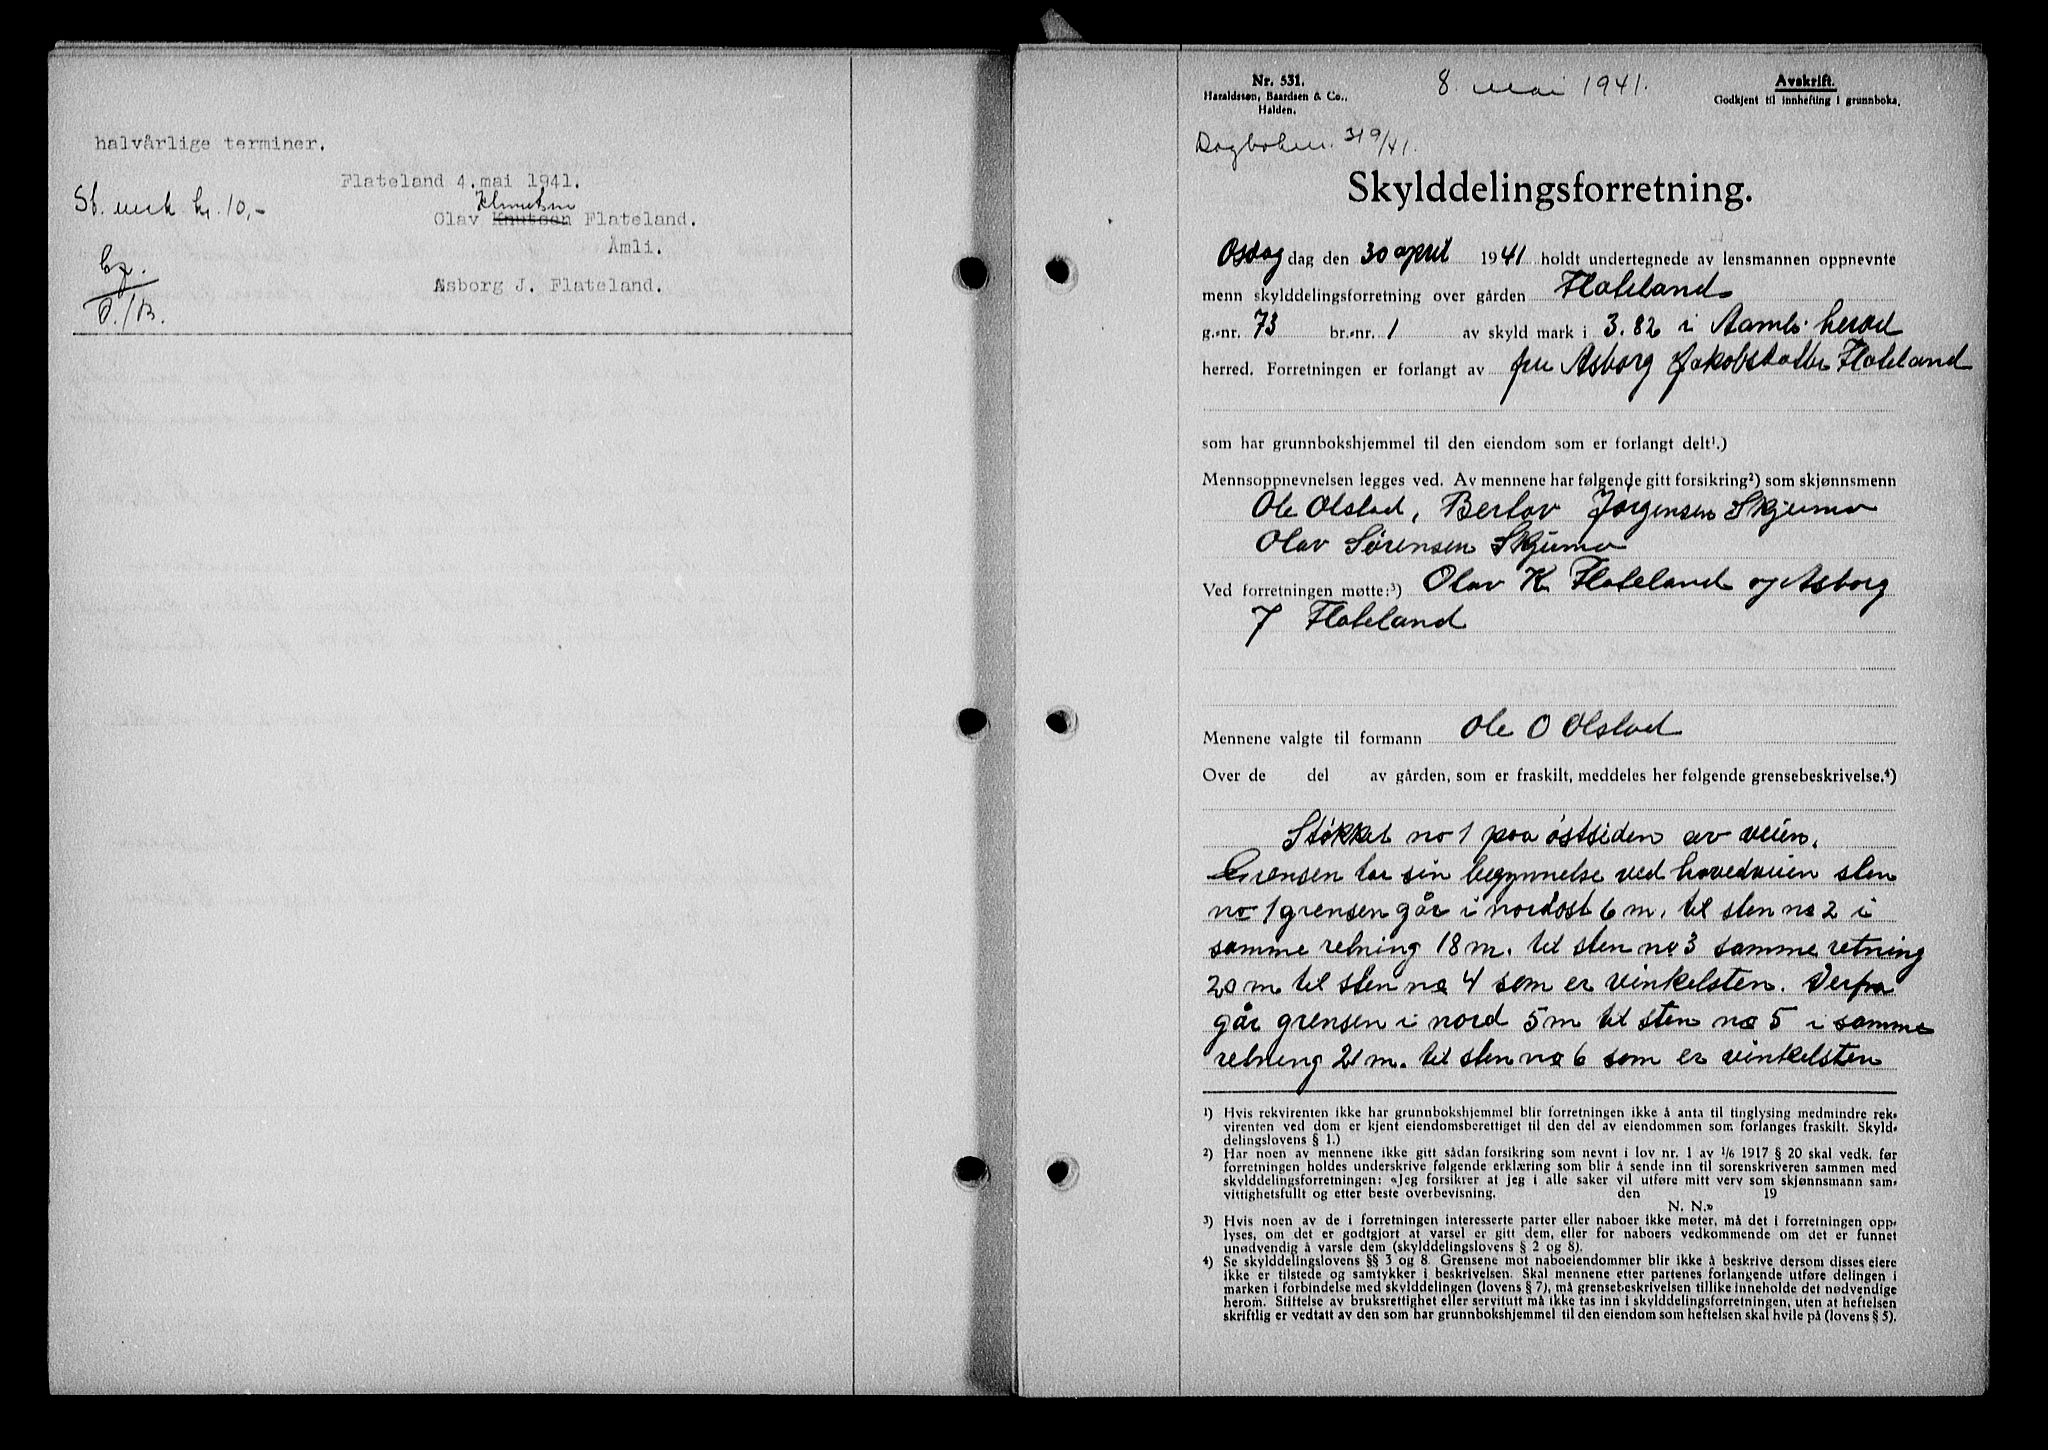 halvårlige terminer.
Flateland 4. mai 1941.
St. merk kr. 10,-
Olav Knutsen Flateland.
Åmli.
Asborg J. Flateland.
Nr. 531.
Haraldssøn, Baardsen & Co.,
Halden.
8. mai 1941.
Avskrift.
Godkjent til innhefting i grunnboka.
Dagboken. 319/41.
Skylddelingsforretning.
Onsdag dag den 30 april 1941 holdt undertegnede av lensmannen oppnevnte
menn skylddelingsforretning over gården Flateland
g.-nr. 73 br.-nr. 1 av skyld mark i 3.82 i Aamli herad
herred. Forretningen er forlangt av fru Asborg Jakobsdatter Flateland
som har grunnbokshjemmel til den eiendom som er forlangt delt¹.)
Mennsoppnevnelsen legges ved. Av mennene har følgende gitt forsikring²) som skjønnsmenn
Ole Olstad, Bertav Jørgensen Skjeimo
Olav Sørensen Skjeimo
Ved forretningen møtte:³) Olav K Flateland og Asborg
J Flateland
Mennene valgte til formann Ole O Olstad
Over de del av gården, som er fraskilt, meddeles her følgende grensebeskrivelse.⁴)
Støkket no 1 paa østsiden av veien.
Grensen tar sin begynnelse ved hovedveien sten
no 1 grensen går i nordost 6 m. til sten no 2 i
samme retning 18 m. til sten no 3 samme retning
20 m til sten no 4 som er vinkelsten. Derfra
går grensen i nord 5 m til sten no 5 i samme
retning 21 m. til sten no 6 som er vinkelsten
¹) Hvis rekvirenten ikke har grunnbokshjemmel blir forretningen ikke å anta til tinglysing medmindre rek-
virenten ved dom er kjent eiendomsberettiget til den del av eiendommen som forlanges fraskilt. Skyld-
delingslovens § 1.)
²) Har noen av mennene ikke gitt sådan forsikring som nevnt i lov nr. 1 av 1/6 1917 § 20 skal vedk. før
forretningen holdes underskrive følgende erklæring som blir å sende inn til sorenskriveren sammen med
skylddelingsforretningen: «Jeg forsikrer at jeg i alle saker vil utføre mitt verv som skjønnsmann sam-
vittighetsfullt og etter beste overbevisning. den 19
N. N.»
³) Hvis noen av de i forretningen interesserte parter eller naboer ikke møter, må det i forretningen opp-
lyses, om det er godtgjort at varsel er gitt dem, eller for naboers vedkommende om det er funnet
unødvendig å varsle dem (skylddelingslovens § 2 og 8).
⁴) Se skylddelingslovens §§ 3 og 8. Grensene mot naboeiendommer blir ikke å beskrive dersom disses eiere
ikke er tilstede og samtykker i beskrivelsen. Skal mennene etter partenes forlangende utføre delingen i
marken i forbindelse med skylddelingen (lovens § 7), må grensebeskrivelsen tillike inneholde det nødvendige
herom. Stiftelse av bruksrettighet eller servitutt må ikke tas inn i skylddelingsforretningen, uten at heftelsen
skriftlig er vedtatt av den som har grunnbokshjemmel til den eiendom som heftelsen skal hvile på (lovens § 5).